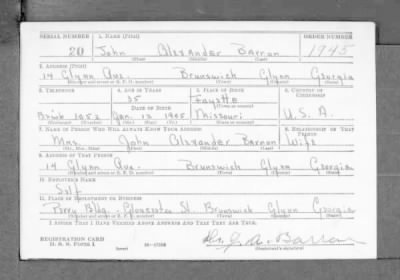 SERIAL NUMBER 1. NAME (Print) ORDER NUMBER
20 John Alexander Barron 1945
(First) (Middle) (Last)
2. ADDRESS (Print)
14 Glynn Ave. Brunswick Glynn Georgia
(Number and street or R. F. D. number) (Town) (County) (State)
3. TELEPHONE 4. AGE IN YEARS 5. PLACE OF BIRTH 6. COUNTRY OF CITIZENSHIP
35 Fayette
DATE OF BIRTH (Town or county)
1052 Jan. 12 1905 Missouri U. S. A.
(Exchange) (Number) (Mo.) (Day) (Yr.) (State or country)
7. NAME OF PERSON WHO WILL ALWAYS KNOW YOUR ADDRESS 8. RELATIONSHIP OF THAT PERSON
Mrs. John Alexander Barron Wife
(Mr., Mrs., Miss) (First) (Middle) (Last)
9. ADDRESS OF THAT PERSON
14 Glynn Ave. Brunswick Glynn Georgia
(Number and street or R. F. D. number) (Town) (County) (State)
10. EMPLOYER'S NAME
Self
11. PLACE OF EMPLOYMENT OR BUSINESS
Bldg. - Gloucester St. Brunswick Glynn Georgia
(Number and street or R. F. D. number) (Town) (County) (State)
I AFFIRM THAT I HAVE VERIFIED ABOVE ANSWERS AND THAT THEY ARE TRUE.
REGISTRATION CARD
D. S. S. Form 1 (over) Dr. J. A. Barron
(Registrant's signature)